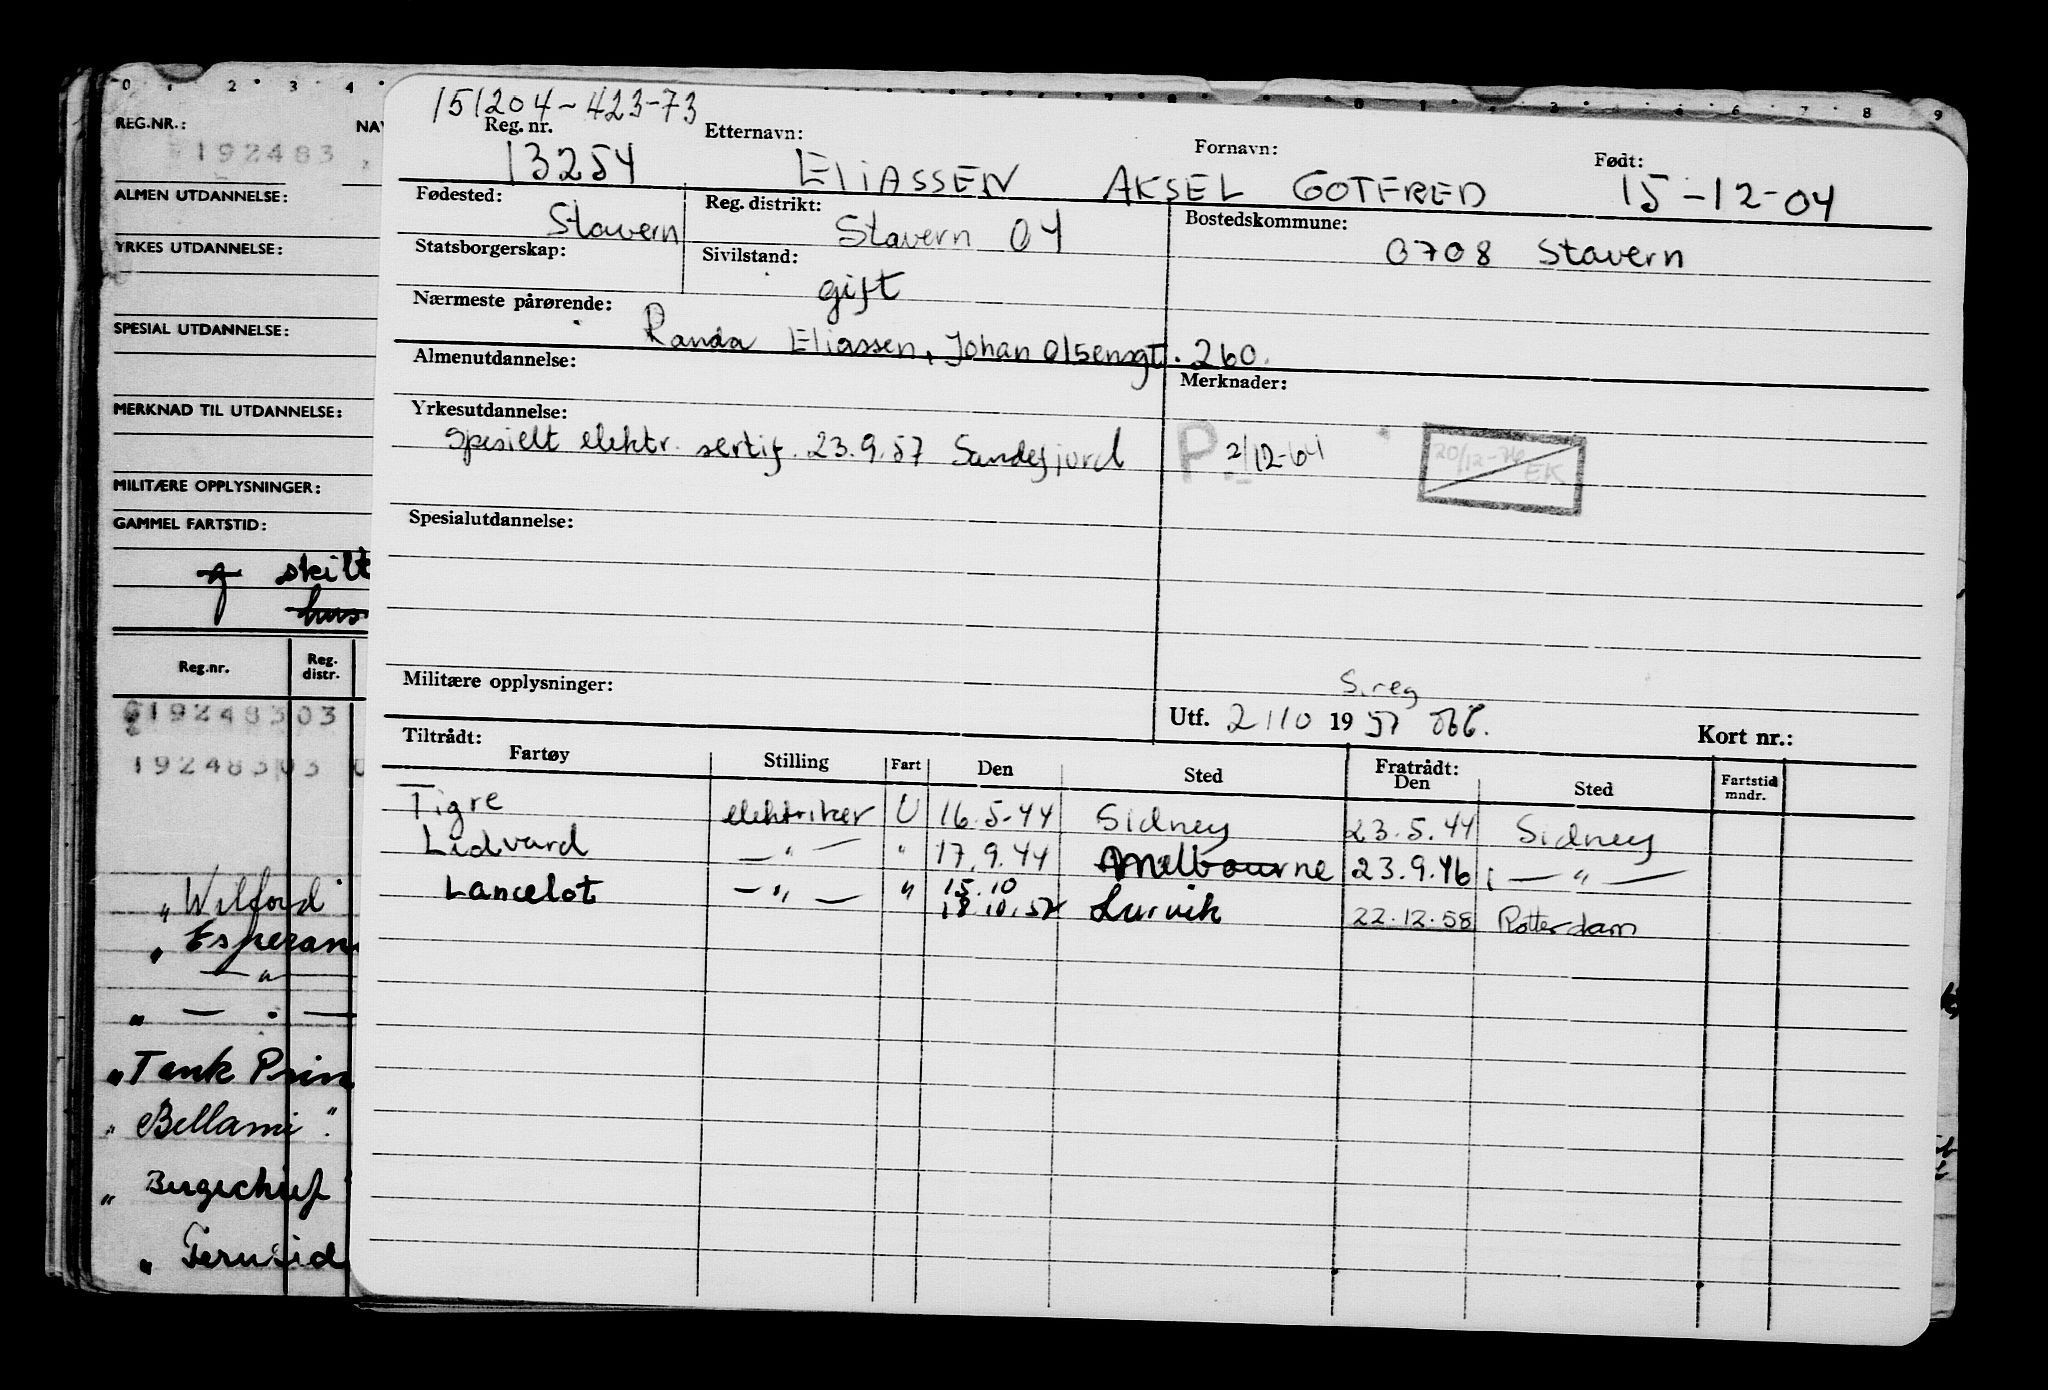 0 1 2 3 4
REG.NR.: NAV
192483
ALMEN UTDANNELSE:
YRKES UTDANNELSE:
SPESIAL UTDANNELSE:
MERKNAD TIL UTDANNELSE:
MILITÆRE OPPLYSNINGER:
GAMMEL FARTSTID:
g skilt
Reg.nr. Reg. distr.
19248303
19248303 0
"Wilford"
" Esperan
— " —
" — " —
"Tank Prin
"Bellami".
" Bergechief
" Fernsid
151204-423-73
Reg. nr. Etternavn: Fornavn: Født:
13254 ELIASSEN AKSEL GOTFRED 15-12-04
Fødested: Reg. distrikt: Bostedskommune:
Stavern Stavern 04 0708 Stavern
Statsborgerskap: Sivilstand:
gift
Nærmeste pårørende:
Randa Eliassen, Johan Olsensgt. 260.
Almenutdannelse: Merknader:
Yrkesutdannelse:
Spesielt elektr. sertif. 23.9.57 Sandefjord P 2/12-64 20/12-76 EK
Spesialutdannelse:
Militære opplysninger: S.reg
Utf. 2/10 1957 Kort nr.:
Tiltrådt: Fratrådt:
Fartøy Stilling Fart Den Sted Den Sted Fartstid mndr.
Tigre elektriker U 16.5-44 Sidney 23.5.44 Sidney
Lidvard — " — " 17.9.44 Melbourne 23.9.46 — " —
Lancelot — " — " 15.10 18.10.57 Larvik 22.12.58 Rotterdam